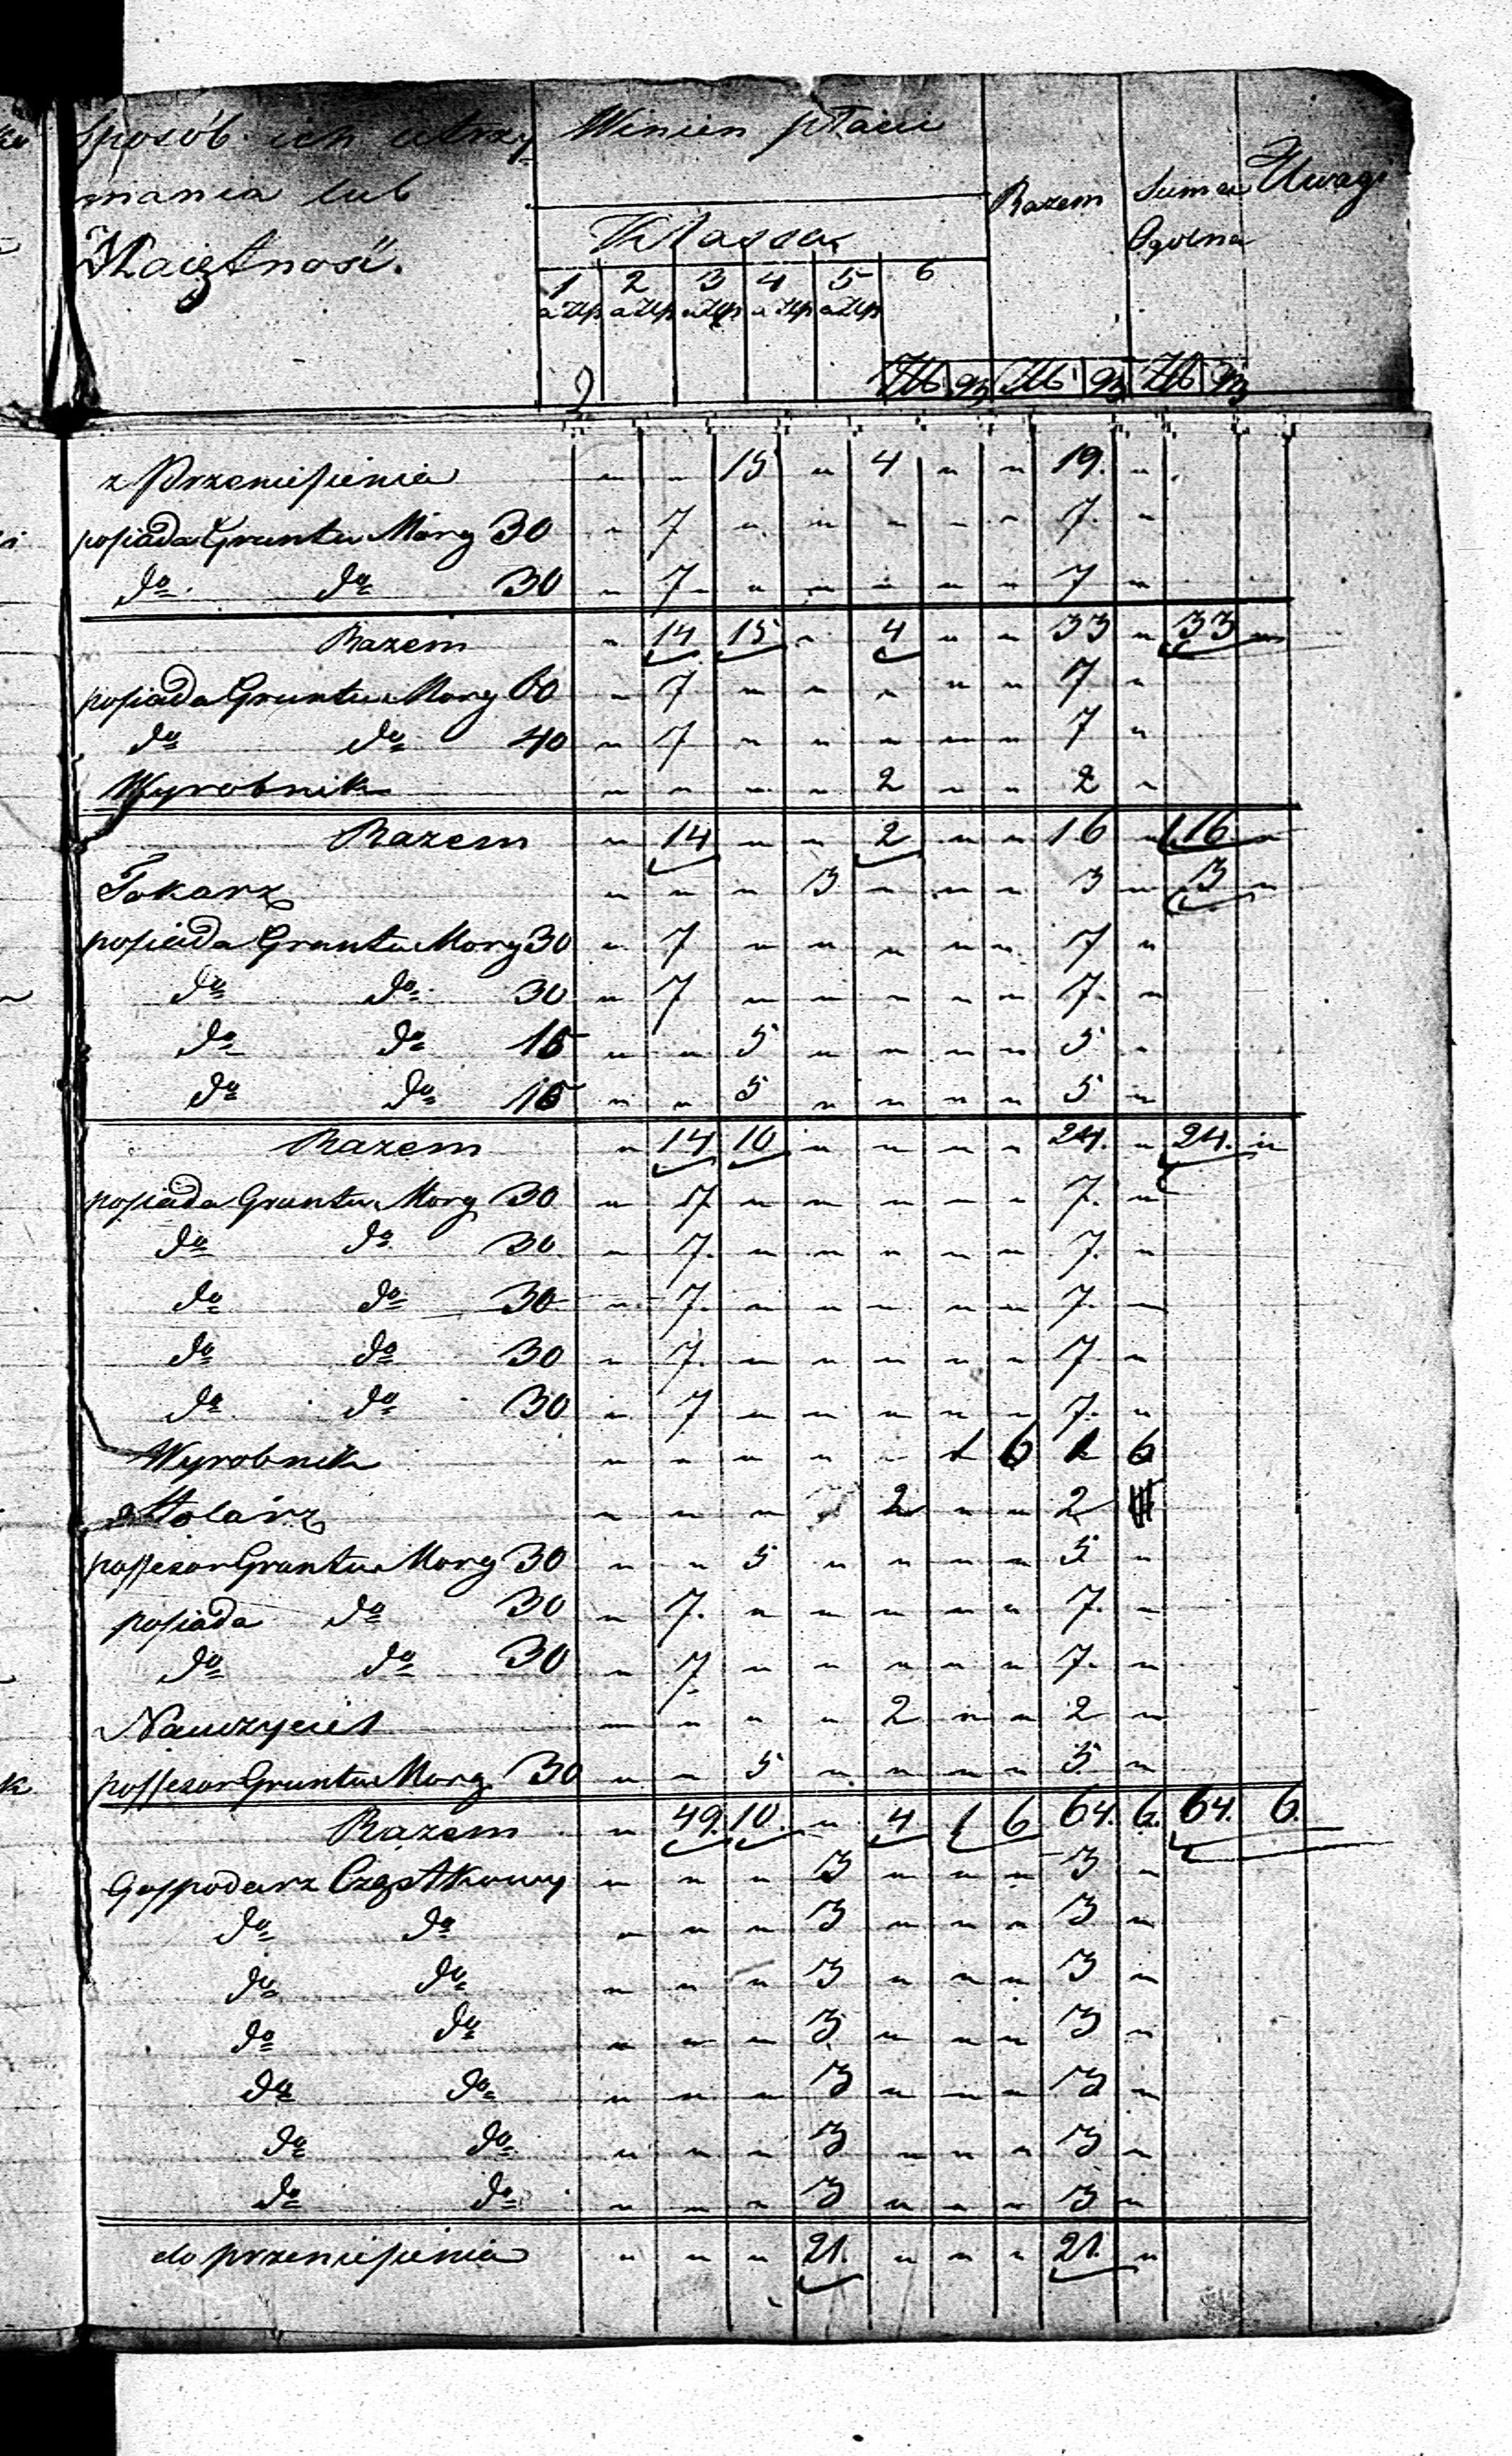 Sposób ich utrzy Winien płacić
mania lub Razem Suma Uwagi
Majętność. Klassa Ogolna
1 2 3 4 5 6
a Złp a Złp a Złp a Złp a Złp
Zł gr Zł gr Zł gr
z Przeniesienia " " 15 " 4 " " 19. "
posiada Gruntu Morg 30 " 7 " " " " " 7. "
do do 30 " 7 " " " " " 7 "
Razem " 14 15 " 4 " " 33 " 33 "
posiada Gruntu Morg 60 " 7 " " " " " 7 "
do do 40 " 7 " " " " " 7 "
Wyrobnik " " " " 2 " " 2 "
Razem " 14 " " 2 " " 16 " 16 "
Tokarz " " " 3 " " " 3 " 3 "
posiada Gruntu Morg 30 " 7 " " " " " 7 "
do do 30 " 7 " " " " " 7. "
do do 15 " " 5 " " " " 5 "
do do 15 " " 5 " " " " 5 "
Razem " 14 10 " " " " 24. " 24. "
posiada Gruntu Morg 30 " 7 " " " " " 7. "
do do 30 " 7. " " " " " 7. "
do do 30 " 7. " " " " " 7. "
do do 30 " 7. " " " " " 7 "
do do 30 " 7 " " " " " 7. "
Wyrobnik " " " " " 1 6 1 6
Stolarz " " " 2 " " 2
possesor Gruntu Morg 30 " " 5 " " " " 5 "
posiada do 30 " 7. " " " " " 7. "
do do 30 " 7 " " " " " 7. "
Nauczyciel " " " " 2 " " 2 "
possesor Gruntu Morg 30 " " 5 " " " " 5 "
Razem " 49. 10. " 4 1 6 64. 6. 64. 6.
Gospodarz Cząstkowy " " " 3 " " " 3 "
do do " " " 3 " " " 3 "
do do " " " 3 " " " 3 "
do do " " " 3 " " " 3 "
do do " " " 3 " " " 3 "
do do " " " 3 " " " 3 "
do do " " " 3 " " " 3 "
do przeniesienia " " " 21. " " " 21. "